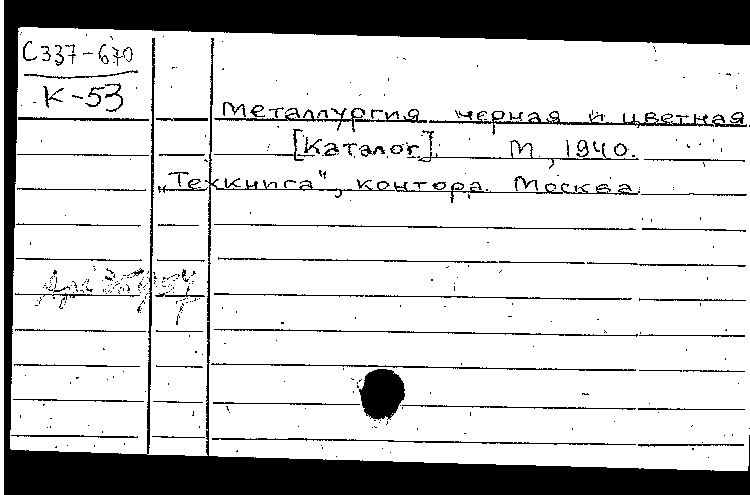 С337-670
К-53
Металлургия черная и цветная
[Каталог]. М., 1940.
„Техкнига", контора. Москва